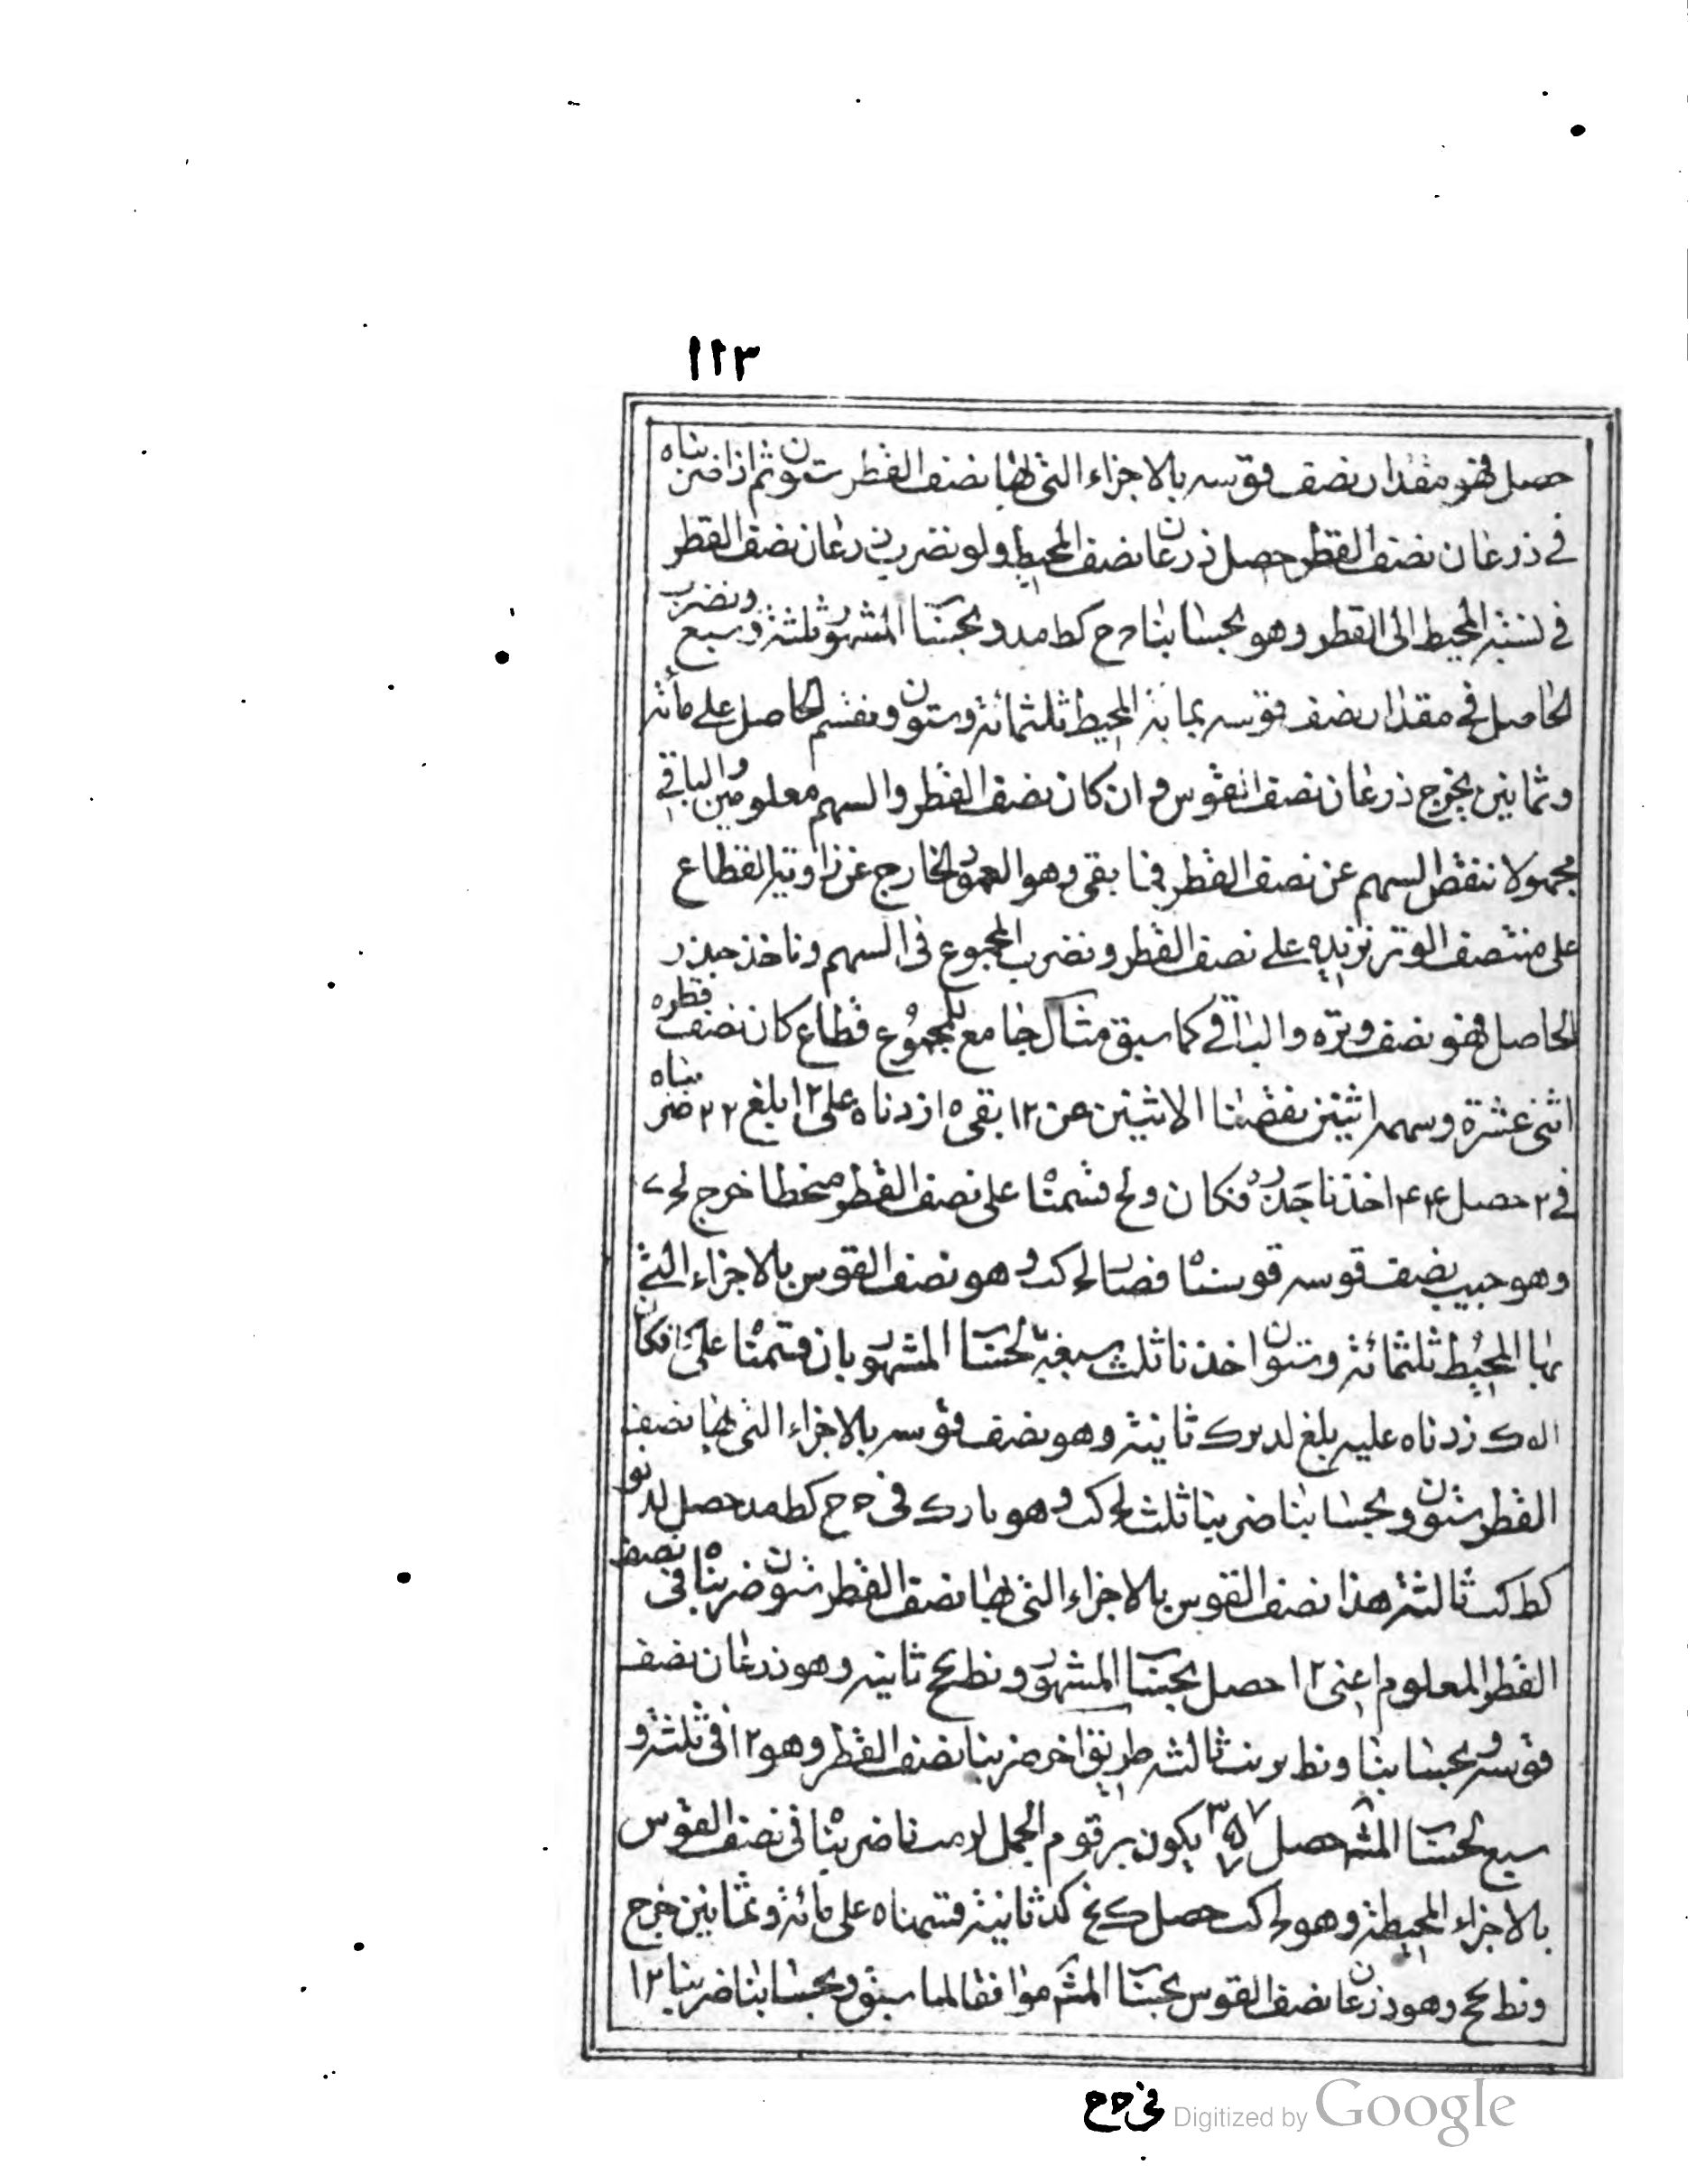 ١١٣
حصل فهو مقدار نصف قوسه بالاجزاء التى بها نصف القطر ستون ثم اذا ضربناه
فى ذرعان نصف القطر حصل ذرعان نصف المحيط ولو نضرب ذرعان نصف القطر
فى نسبة المحيط الى القطر وهو بحسابنا ح كط مد وبحساب المشهور ثلثة وسبع ونضرب
الحاصل فى مقدار نصف قوسه بما به المحيط ثلثمائة وستون ونقسم الحاصل على مائة
وثمانين يخرج ذرعان نصف القوس وان كان نصف القطر والسهم معلومين والباقى
مجهولا ننقص السهم عن نصف القطر فما بقى وهو العمود الخارج عن زاوية القطاع
على منتصف الوتر نزيده على نصف القطر ونضرب المجموع فى السهم وناخذ جذر
الحاصل فهو نصف وتره والباقى كما سبق مثال جامع للمجموع قطاع كان نصف قطره
اثنى عشرة وسهمه اثنين نقصنا الاثنين عن ١٢ بقى ١٠ زدناه على ١٢ بلغ ٢٢ ضربناه
فى ٢ حصل ۴۴ اخذنا جذره فكان و لح قسمناه على نصف القطر منحطا خرج لح ى
وهو جيب نصف قوسه قوسناه فصار لح كب وهو نصف القوس بالاجزاء التى
بها المحيط ثلثمائة وستون اخذنا ثلث سبعه بحساب المشهور بان قسمناه على كا فكان
زدناه عليه بلغ ثانية وهو نصف قوسه بالاجزاء التى بها نصف
القطر ستون وبحسابنا ضربنا ثلث لح كب وهو فى ح كط مد حصل لد
كط كب ثالثة هذا نصف القوس بالاجزاء التى بها نصف القطر ستون ضربناه فى نصف
القطر المعلوم اعنى ١٢ حصل بحساب المشهور و نط مح ثانية وهو ذرعان نصف
قوسه وبحسابنا و نط ثالثة طريق اخر ضربنا نصف القطر وهو ١٢ فى ثلثة و
سبع بحساب المشهـ حصل ٣٧ ٥ ٧ يكون برقوم الجمل ضربناه فى نصف القوس
بالاجزاء المحيطة وهو لح كب حصل كد ثانية قسمناه على مائة وثمانين خرج
و نط مح وهو ذرعان نصف القوس بحساب المشهـ موافقا لما سبق وبحسابنا ضربنا ١٢
فى ح
Digitized by Google